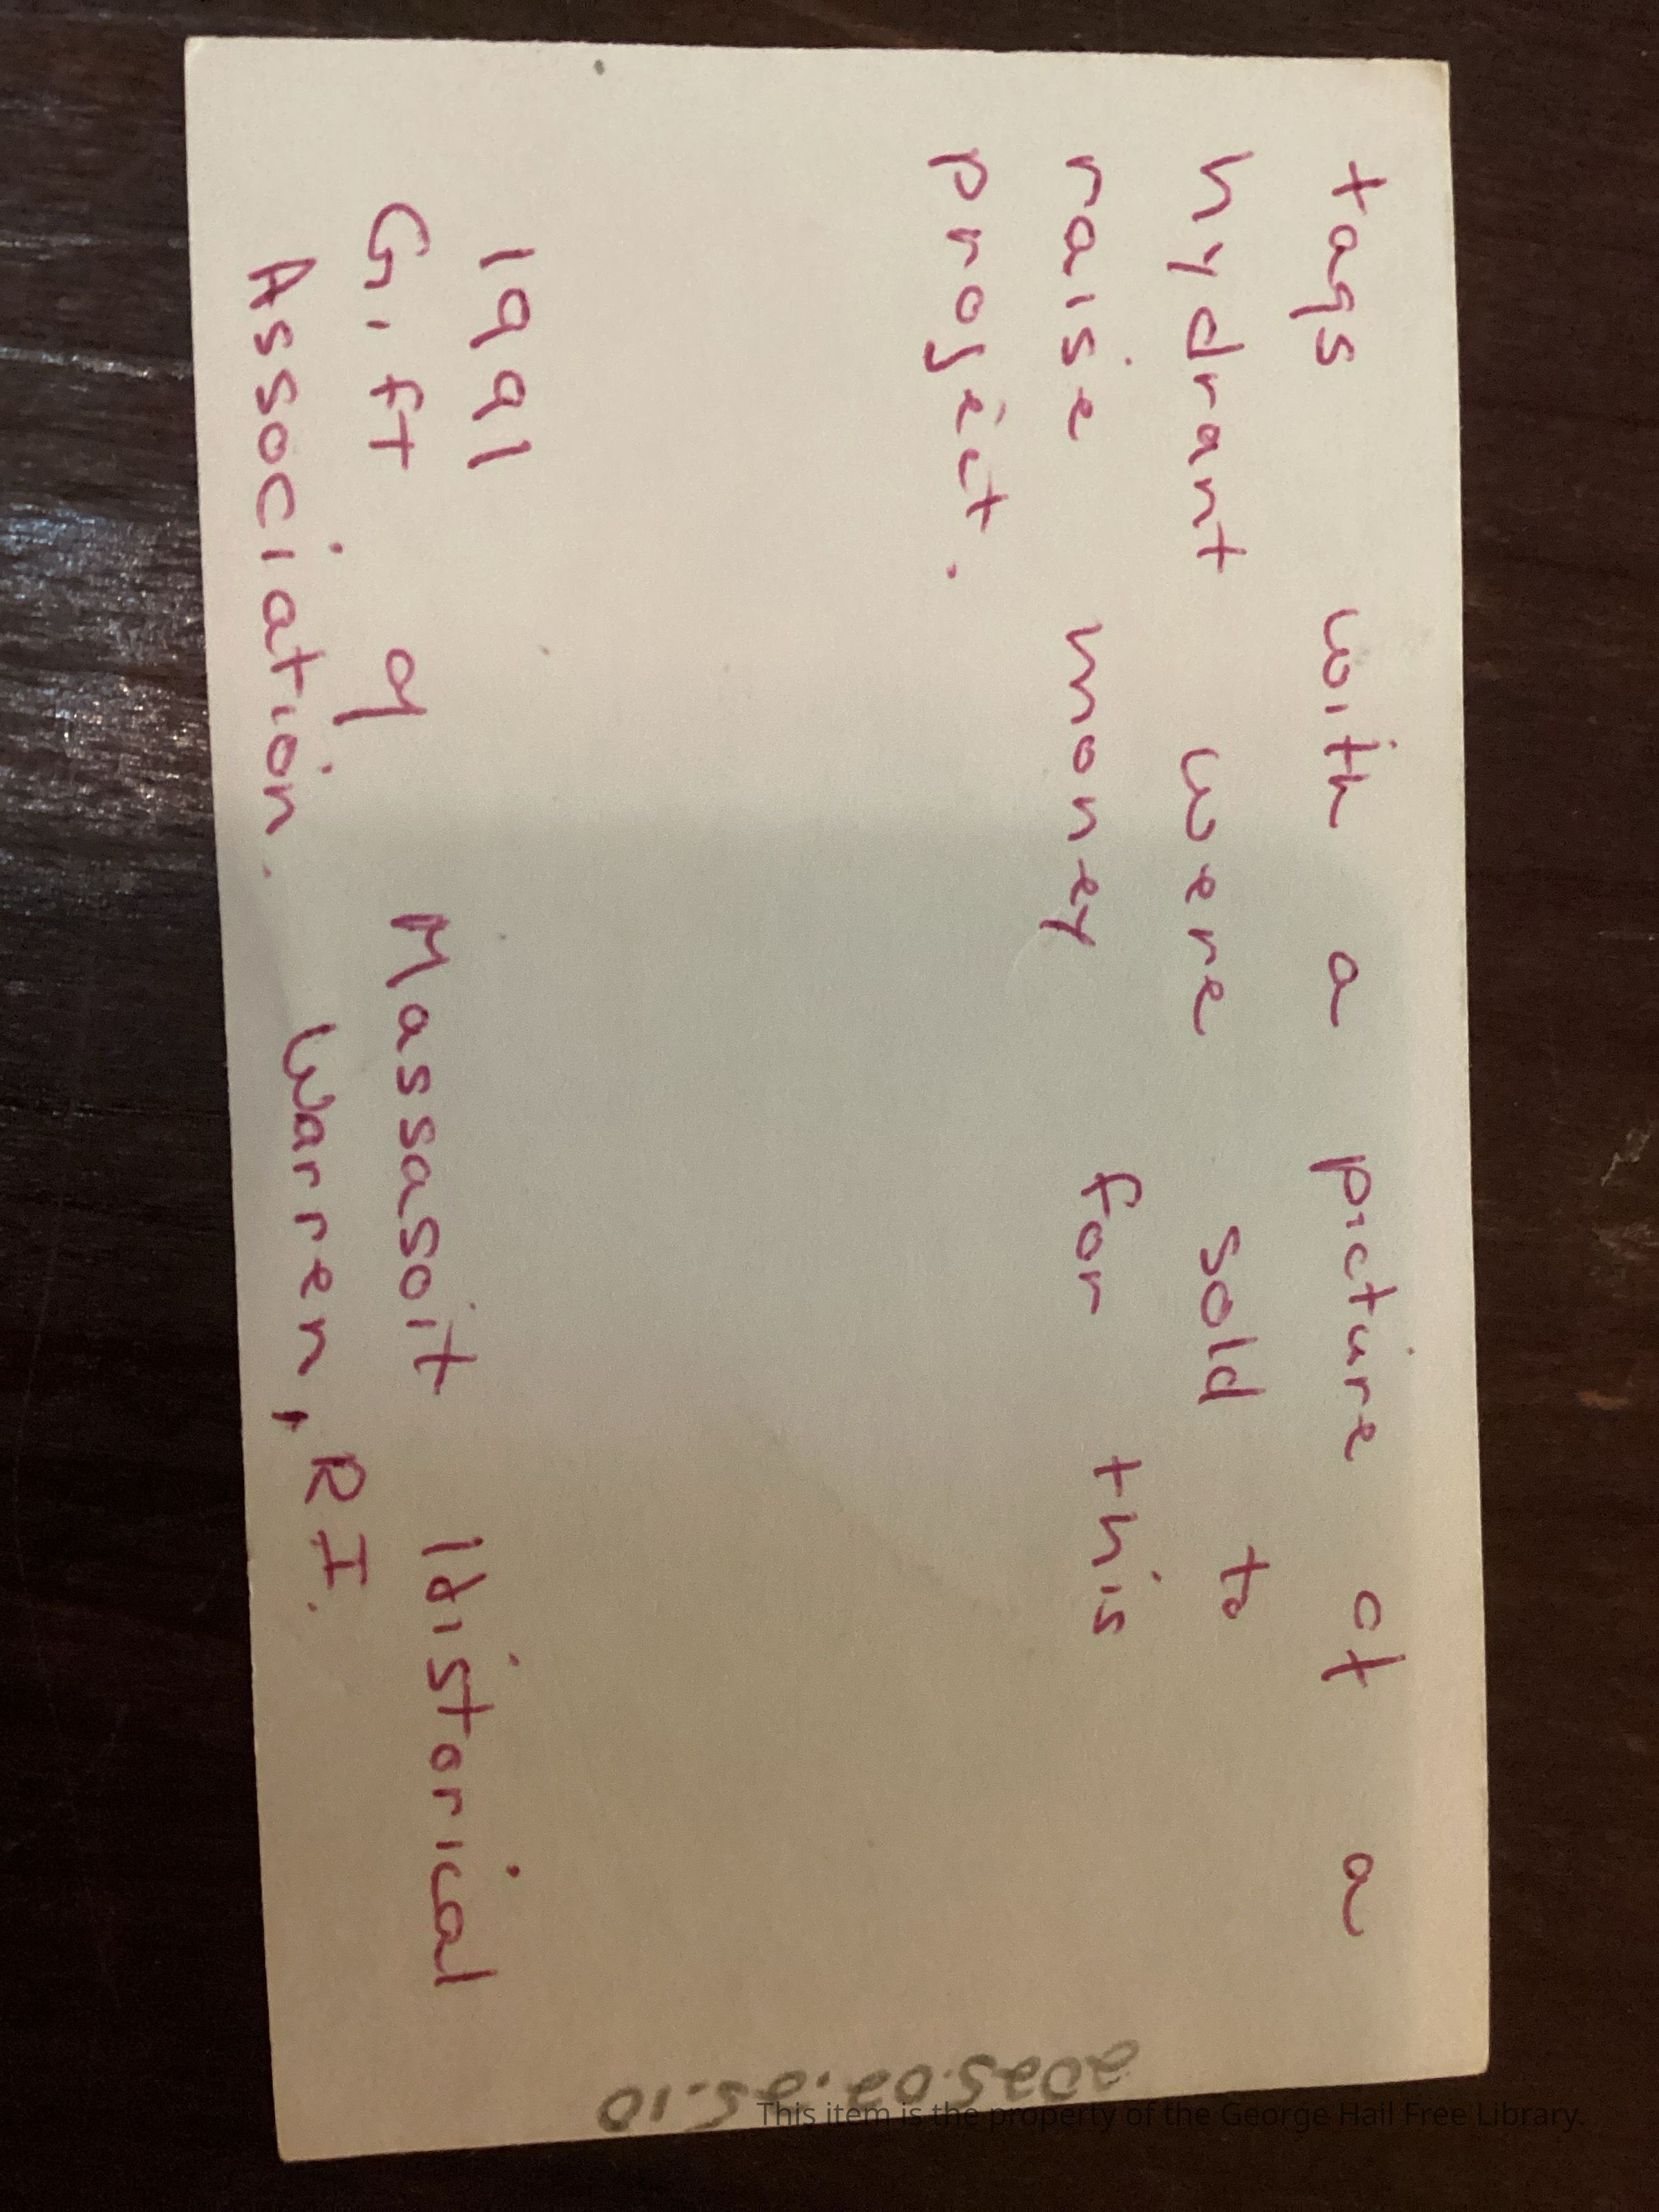 tags with a picture of a
hydrant were sold to
raise money for this
project.
1991
Gift of Massasoit Historical
Association. Warren, RI.
2025.02.25.10
This item is the property of the George Hail Free Library.